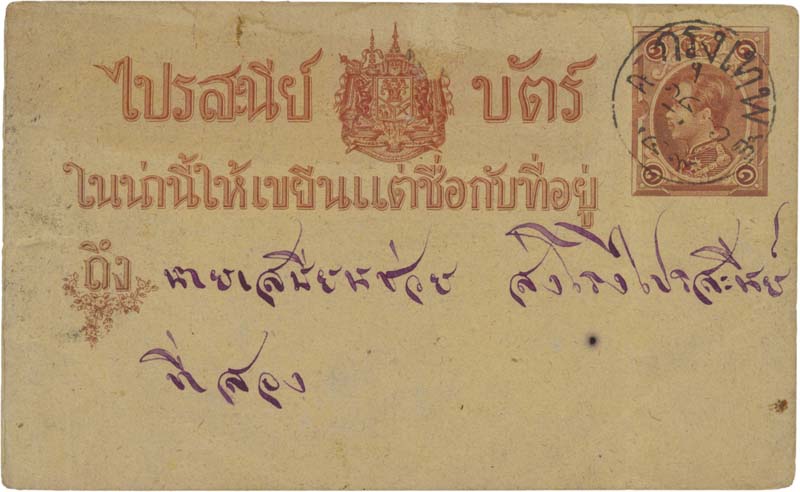 ไปรสนีย์ บัตร์
๑ ๑
กรุงเทพ
ในน่านี้ให้เขยีนแต่ชื่อกับที่อยู่
๑ ๑
ถึง นายเสมียนช่วย ส่งโรงไปรสะนีย์
ที่สอง